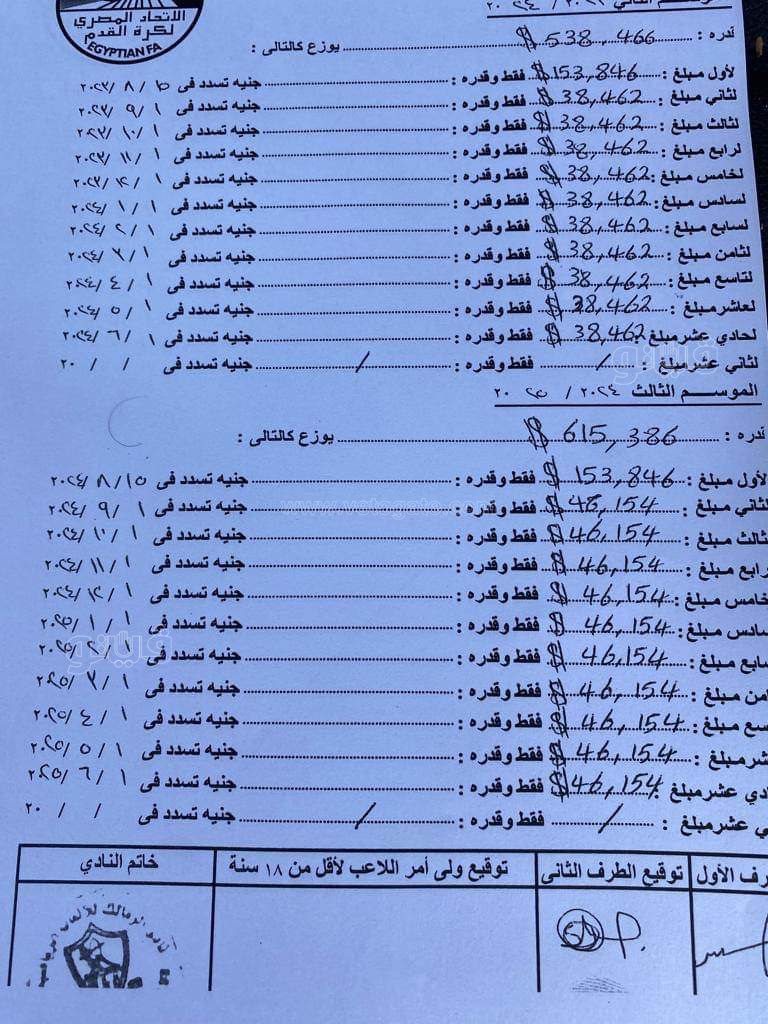 الاتحاد المصري
لكرة القدم
EGYPTIAN FA
قدره : $ 538,466 يوزع كالتالى :
لأول مبلغ : $ 153,846 فقط وقدره : جنيه تسدد فى ١٥ / ٨ / ٢٠٢٣
لثاني مبلغ : $ 38,462 فقط وقدره : جنيه تسدد فى ١ / ٩ / ٢٠٢٣
لثالث مبلغ : $ 38,462 فقط وقدره : جنيه تسدد فى ١ / ١٠ / ٢٠٢٣
لرابع مبلغ : $ 38,462 فقط وقدره : جنيه تسدد فى ١ / ١١ / ٢٠٢٣
لخامس مبلغ : $ 38,462 فقط وقدره : جنيه تسدد فى ١ / ١٢ / ٢٠٢٣
لسادس مبلغ : $ 38,462 فقط وقدره : جنيه تسدد فى ١ / ١ / ٢٠٢٤
لسابع مبلغ : $ 38,462 فقط وقدره : جنيه تسدد فى ١ / ٢ / ٢٠٢٤
لثامن مبلغ : $ 38,462 فقط وقدره : جنيه تسدد فى ١ / ٣ / ٢٠٢٤
لتاسع مبلغ : $ 38,462 فقط وقدره : جنيه تسدد فى ١ / ٤ / ٢٠٢٤
لعاشر مبلغ : $ 38,462 فقط وقدره : جنيه تسدد فى ١ / ٥ / ٢٠٢٤
لحادي عشر مبلغ : $ 38,462 فقط وقدره : جنيه تسدد فى ١ / ٦ / ٢٠٢٤
لثاني عشر مبلغ : / فقط وقدره : / جنيه تسدد فى / / ٢٠
الموسم الثالث ٢٠٢٤ / ٢٠٢٥
قدره : $ 615,386 يوزع كالتالى :
لأول مبلغ : $ 153,846 فقط وقدره : جنيه تسدد فى ١٥ / ٨ / ٢٠٢٤
لثاني مبلغ : $ 46,154 فقط وقدره : جنيه تسدد فى ١ / ٩ / ٢٠٢٤
ثالث مبلغ : $ 46,154 فقط وقدره : جنيه تسدد فى ١ / ١٠ / ٢٠٢٤
رابع مبلغ : $ 46,154 فقط وقدره : جنيه تسدد فى ١ / ١١ / ٢٠٢٤
خامس مبلغ : $ 46,154 فقط وقدره : جنيه تسدد فى ١ / ١٢ / ٢٠٢٤
سادس مبلغ : $ 46,154 فقط وقدره : جنيه تسدد فى ١ / ١ / ٢٠٢٥
سابع مبلغ : $ 46,154 فقط وقدره : جنيه تسدد فى ١ / ٢ / ٢٠٢٥
امن مبلغ : $ 46,154 فقط وقدره : جنيه تسدد فى ١ / ٣ / ٢٠٢٥
سع مبلغ : $ 46,154 فقط وقدره : جنيه تسدد فى ١ / ٤ / ٢٠٢٥
شر مبلغ : $ 46,154 فقط وقدره : جنيه تسدد فى ١ / ٥ / ٢٠٢٥
دي عشر مبلغ : $ 46,154 فقط وقدره : جنيه تسدد فى ١ / ٦ / ٢٠٢٥
ي عشر مبلغ : / فقط وقدره : / جنيه تسدد فى / / ٢٠
رف الأول توقيع الطرف الثانى توقيع ولى أمر اللاعب لأقل من ١٨ سنة خاتم النادي
نادي الزمالك للألعاب الرياضية
فيتو
www.vetogate.com
فيتو